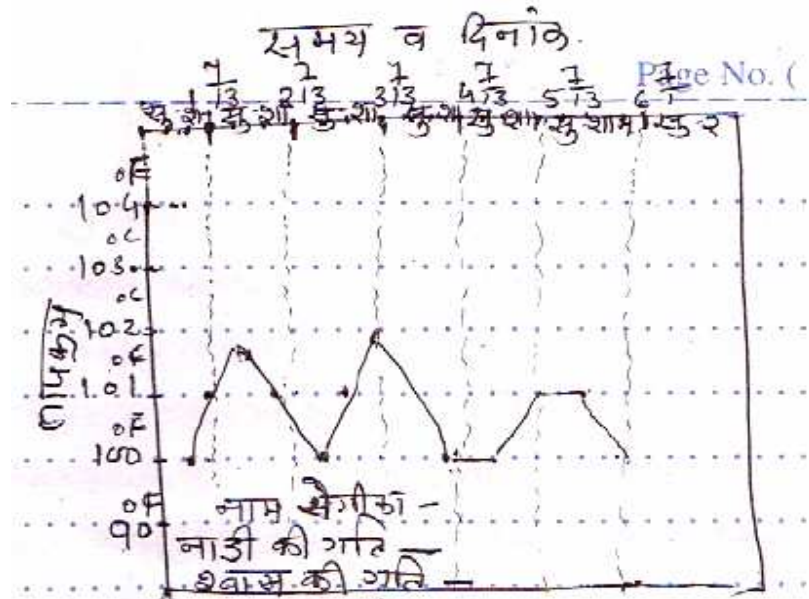 समय व दिनांक
Page No. (
1 7/13 2 7/13 3 7/13 4 7/13 5 7/13 6 7/1
सु. शा. सु. शा. सु. शा. सु. शा. सु. शा. सु शाम सु
°F
104
°C
103
°C
102
°F
101
°F
100
°F
90
तापक्रम
नाम रोगीका -
नाडी की गति -
श्वास की गति -